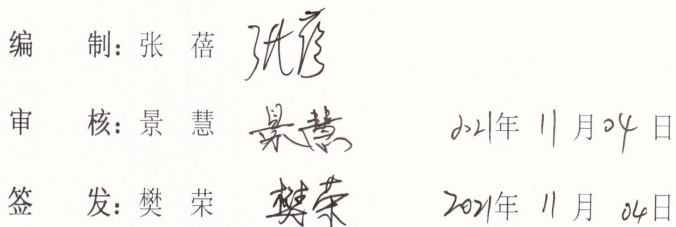 编 制: 张 蓓 张蓓
审 核: 景 慧 景慧 2021年 11 月 04 日
签 发: 樊 荣 樊荣 2021年 11 月 04日